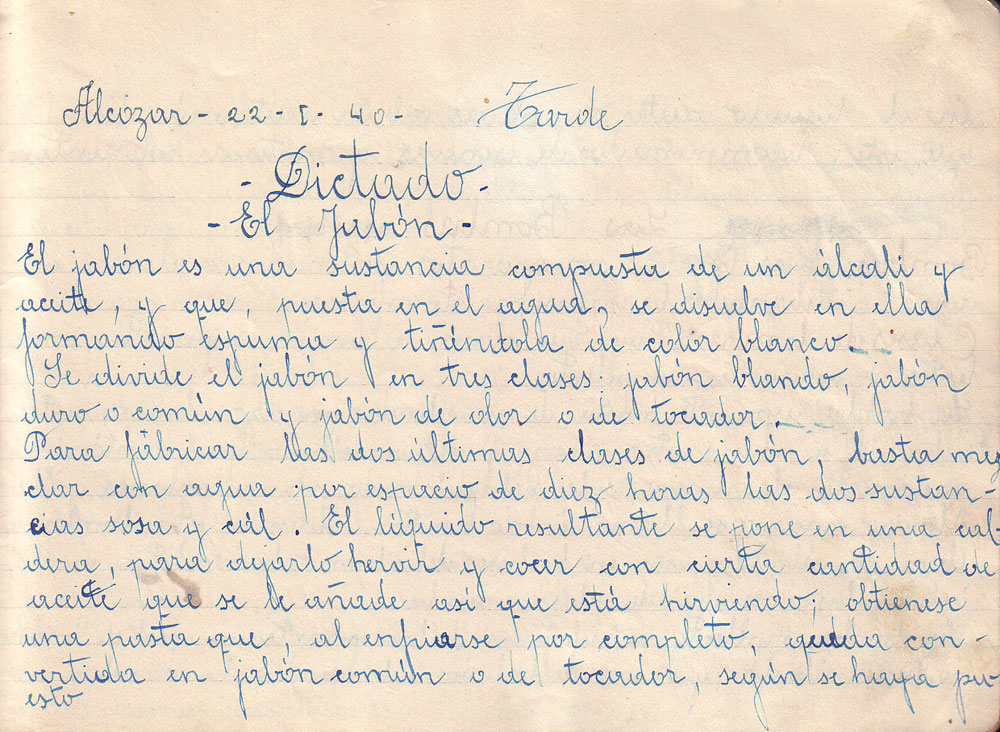 Alcózar - 22 - I - 40 - Tarde
- Dictado -
- El Jabón -
El jabón es una sustancia compuesta de un álcali y
aceite, y que, puesta en el agua, se disuelve en ella
formando espuma y tiñéndola de color blanco.
Se divide el jabón en tres clases: jabón blando, jabón
duro o común y jabón de olor o de tocador.
Para fábricar las dos últimas clases de jabón, basta mez
clar con agua por espacio de diez horas las dos sustan-
cias sosa y cál. El líquido resultante se pone en una cal
dera, para dejarlo hervir y cocer con cierta cantidad de
aceite que se le añade así que está hirviendo; obtienese
una pasta que, al enfriarse por completo, queda con-
vertida en jabón común o de tocador, según se haya pu
esto